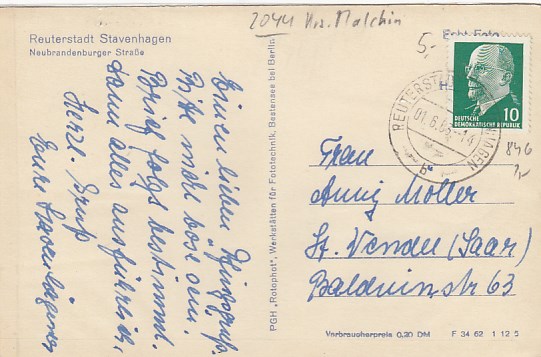 2044 Krs. Malchin
Reuterstadt Stavenhagen
Neubrandenburger Straße
5,-
Echt Foto
DEUTSCHE
DEMOKRATISCHE REPUBLIK
10
REUTERSTADT
HAGEN
01.6.65-14
846
1,-
Einen lieben Pfingstgruß.
Bitte nicht böse sein.
Brief folgt bestimmt.
dann alles ausführlich,
Herzl. Gruß
Eure Stavenhagener
PGH „Rotophot“, Werkstätten für Fototechnik, Bestensee bei Berlin
Frau
Anny Moller
St. Wendel (Saar)
Balduinstr 63
Verbraucherpreis 0,20 DM
F 34 62 1 12 5